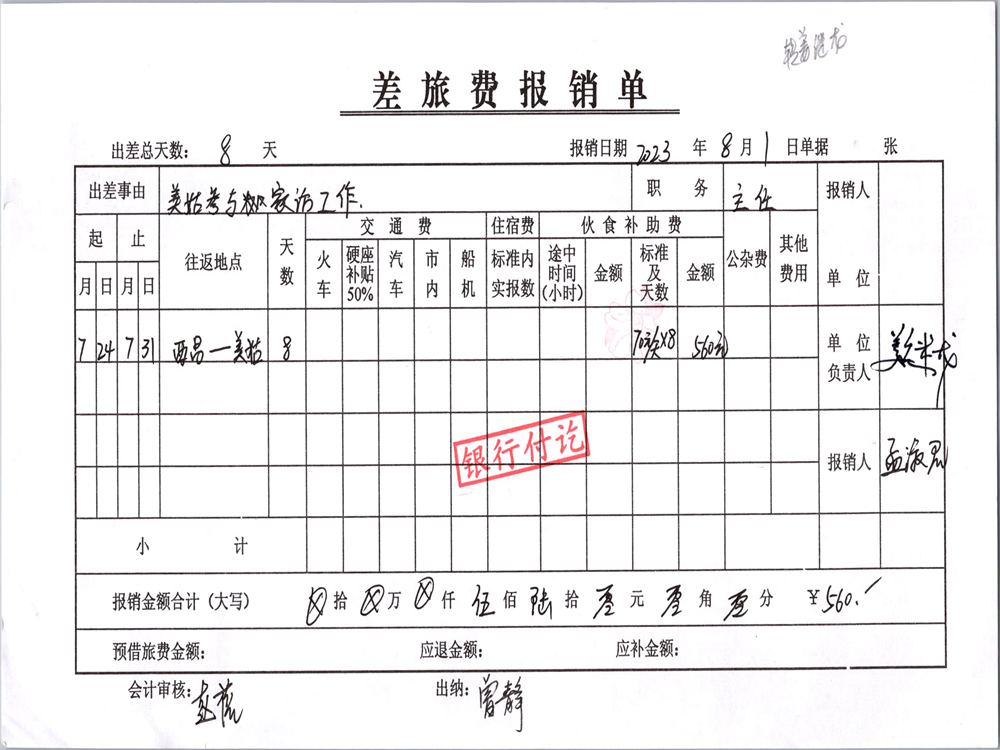 差旅费报销单
出差总天数: 8 天 报销日期 2023 年 8 月 1 日单据 张
出差事由 美姑 家访工作. 职务 主任 报销人
起 止 往返地点 天数 交通费 住宿费 伙食补助费 公杂费 其他费用 单位
月 日 月 日 火车 硬座补贴50% 汽车 市内 船机 标准内实报数 途中时间(小时) 金额 标准及天数 金额
7 24 7 31 西昌—美姑 8 70元×8 560元 单位负责人
银行付讫
报销人
小计
报销金额合计(大写) 拾 万 仟 伍 佰 陆 拾 零 元 零 角 零 分 ¥560.
预借旅费金额: 应退金额: 应补金额:
会计审核: 出纳: 曾静